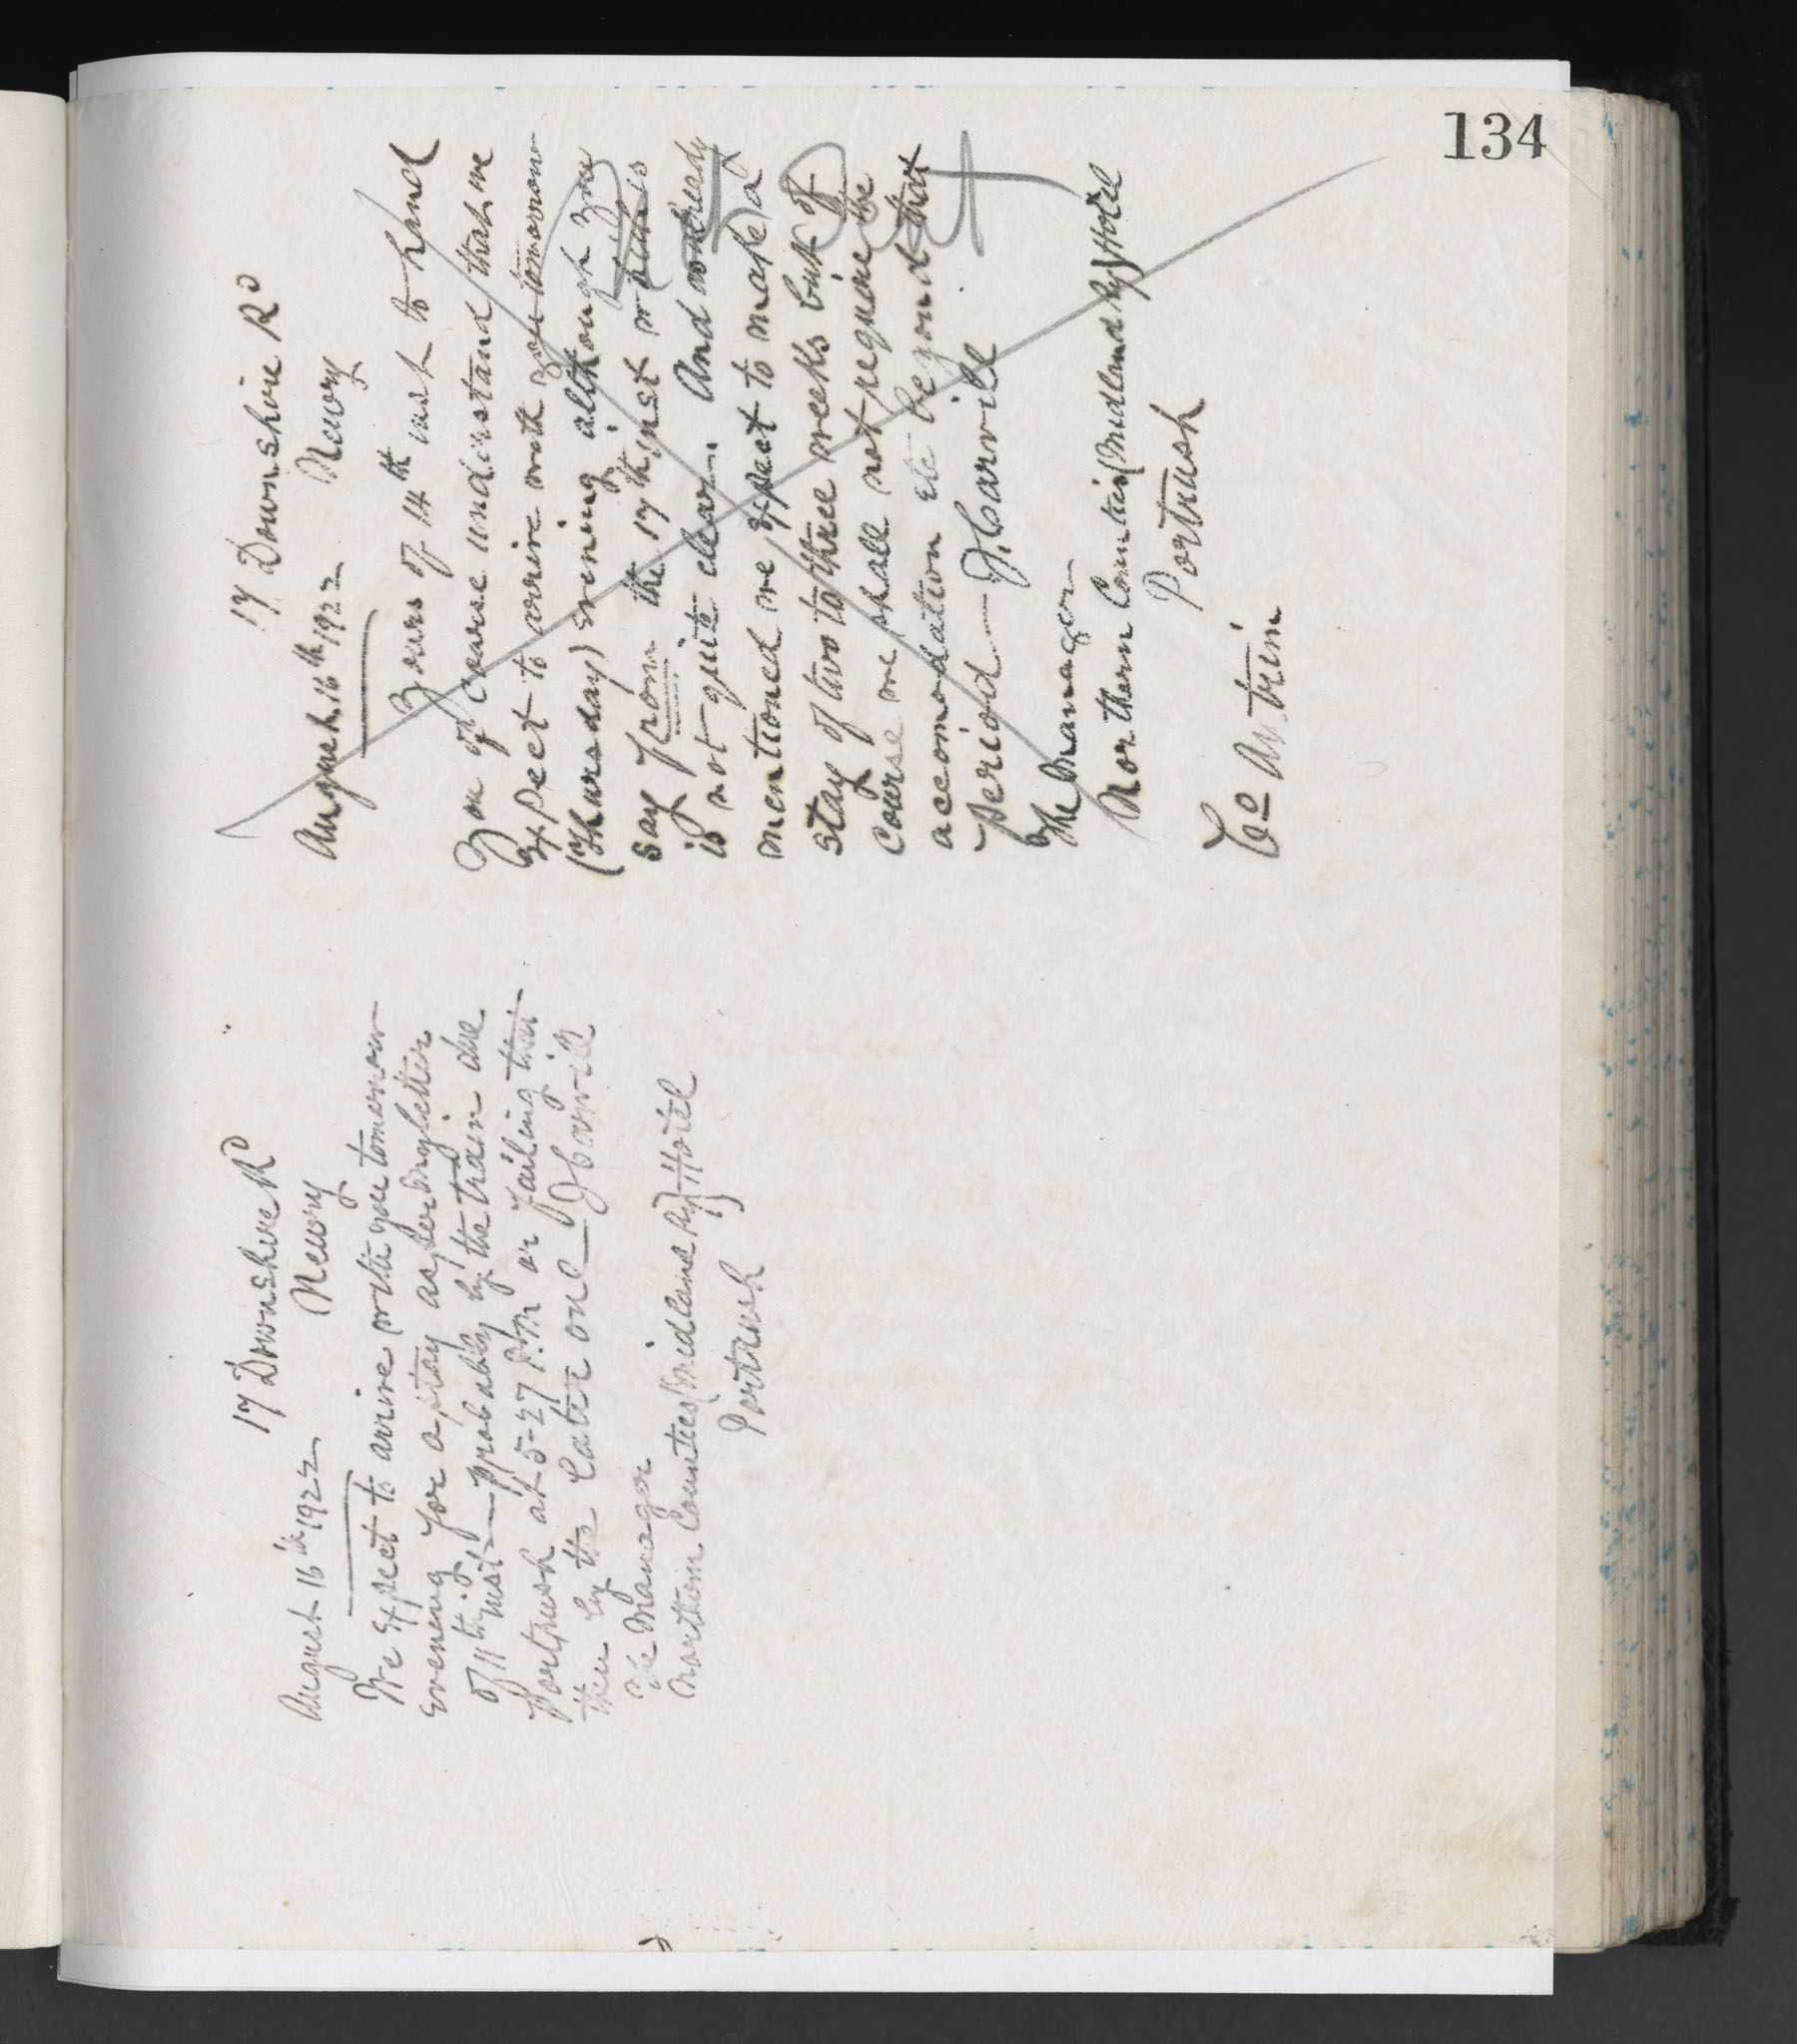 134
17 Downshire Rd
Newry
August 16th 1922
Yours of 14th inst to hand
You of course understand that we
Expect to arrive with you tomorrow
(Thursday) evening although you
say from the 17th inst which is
is not quite clear. And as already
mentioned we expect to make a
stay of two to three weeks but of
course we shall not require the
accomodation etc beyond that
period — J. Carvill
The Manager
Northern Counties (Midland Ry) Hotel
Portrush
Co Antrim
17 Downshire Rd
Newry
August 16th 1922
We Expect to arrive with you tomorrow
Evening for a stay as per my letter
of 11th inst — probably by the train due
Portrush at 5-27 P.M or failing that
then by the later one — J Carvill
The Manager
Northern Counties (Midland Ry) Hotel
Portrush